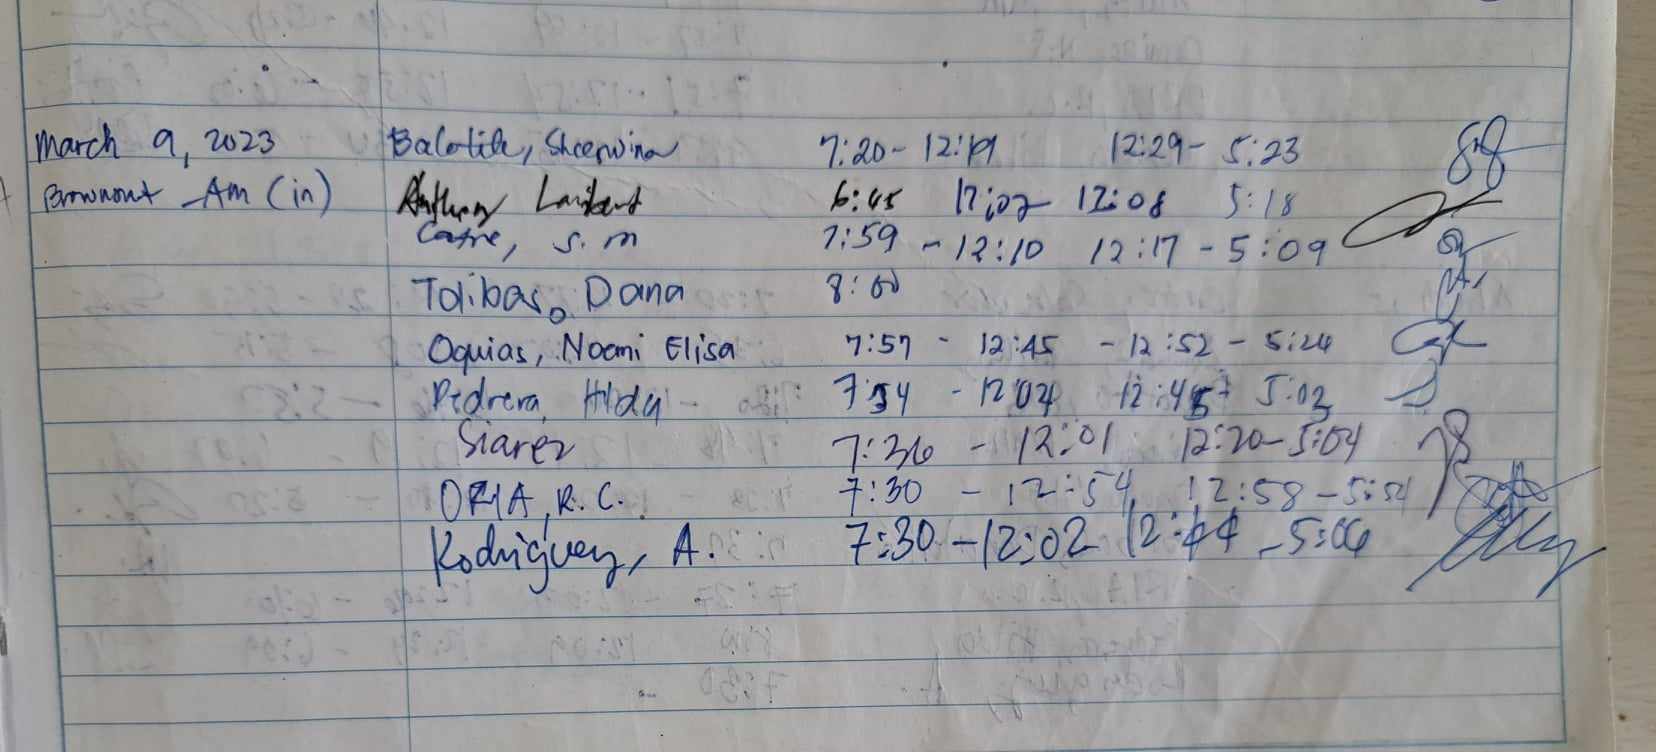 March 9, 2023 Balatile, Sheerwina 7:20 - 12:19 12:29 - 5:23
Brownout Am (in) Anthony Lambert 6:45 12:02 12:08 5:18
S. M 7:59 - 12:10 12:17 - 5:09
Tolibas, Dana 8:00
Oquias, Noemi Elisa 7:57 - 12:45 - 12:52 - 5:24
Pedrera, Hilda 7:54 - 12:02 12:45 5:03
Siarez 7:36 - 12:01 12:20 - 5:04
ORIA, R. C. 7:30 - 12:54 12:58 - 5:51
Rodriguez, A. 7:30 - 12:02 12:44 - 5:06